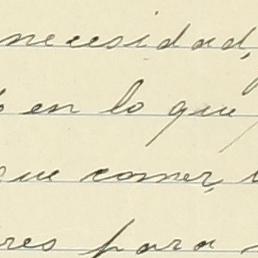 necesidad,
en lo que
que comer,
res para